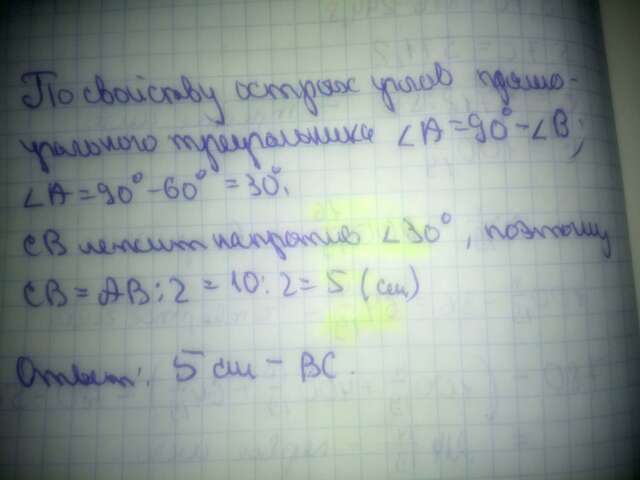 По свойству острых углов прямо-
угольного треугольника ∠A=90°-∠B;
∠A=90°-60°=30°.
CB лежит напротив ∠30°, поэтому
CB = AB:2 = 10:2 = 5 (см)
Ответ: 5 см - BC.